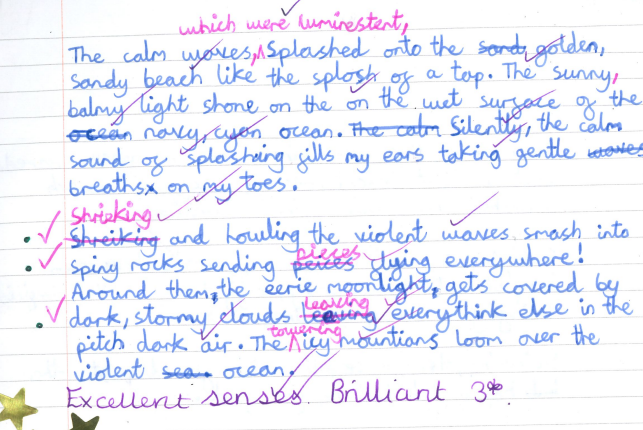 which were luminestent,
The calm waves, splashed onto the sandy golden,
sandy beach like the splosh of a tap. The sunny,
balmy light shone on the on the wet surface of the
ocean navy, cyan ocean. The calm Silently, the calm
sound of splashing fills my ears taking gentle waves
breaths on my toes.
Shrieking
Shreiking and howling the violent waves smash into
pieces
spiny rocks sending peices flying everywhere!
Around them, the eerie moonlight, gets covered by
leaving
dark, stormy clouds leaving everythink else in the
towering
pitch dark air. The icy mountians loom over the
violent sea. ocean.
Excellent senses. Brilliant 3*